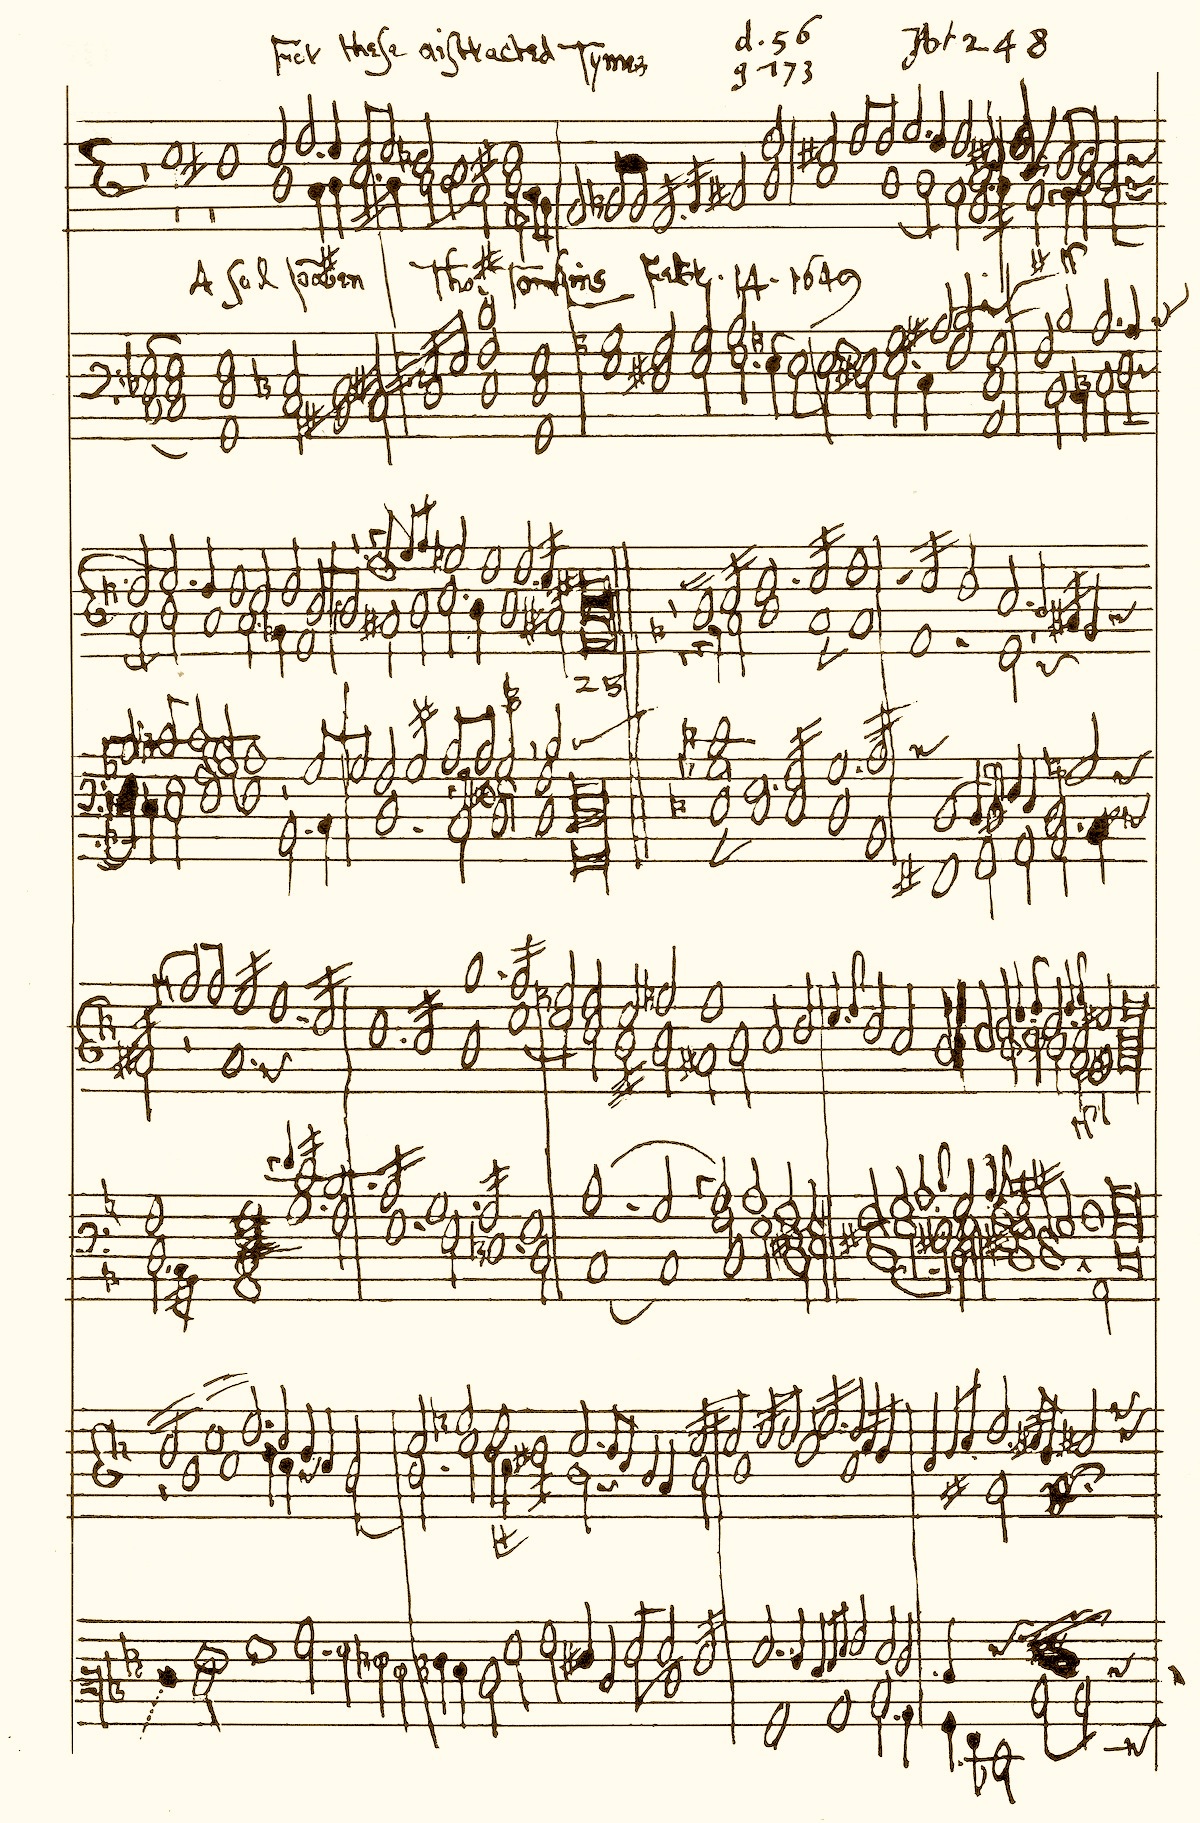 For these distracted Tymes d. 56 Ap 248
g 173
A sad pavan Tho: Tomkins Febr. 14. 1649
25